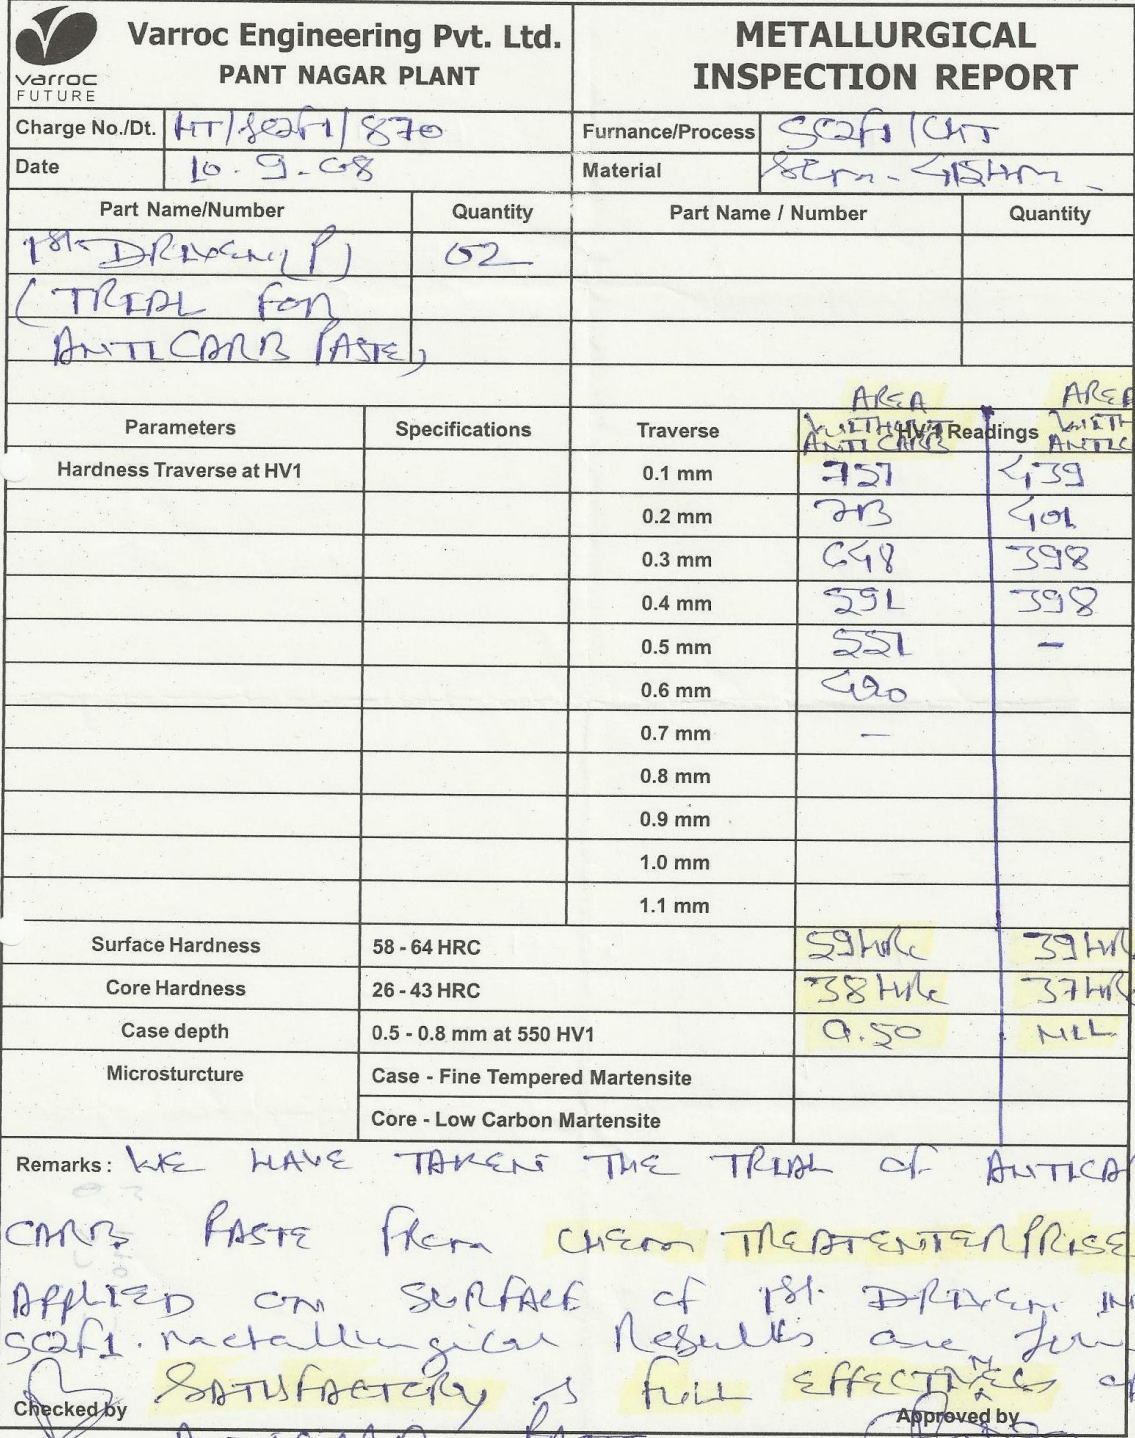 varroc
FUTURE
Varroc Engineering Pvt. Ltd.
PANT NAGAR PLANT
METALLURGICAL
INSPECTION REPORT
Charge No./Dt. HT/SQF1/870
Furnance/Process SQF1/CHT
Date 10.9.08
Material
Part Name/Number Quantity Part Name / Number Quantity
1st DRIVEN (P) 02
(TRIAL FOR
ANTI CARB PASTE)
AREA WITHOUT ANTI CARB
AREA WITH
Parameters Specifications Traverse HV1 Readings
Hardness Traverse at HV1 0.1 mm 757 439
0.2 mm 713 401
0.3 mm 648 398
0.4 mm 591 398
0.5 mm 551 -
0.6 mm 490
0.7 mm -
0.8 mm
0.9 mm
1.0 mm
1.1 mm
Surface Hardness 58 - 64 HRC 59 HRc 39 HR
Core Hardness 26 - 43 HRC 38 HRc 37 HR
Case depth 0.5 - 0.8 mm at 550 HV1 0.50 NIL
Microsturcture Case - Fine Tempered Martensite
Core - Low Carbon Martensite
Remarks : WE HAVE TAKEN THE TRIAL OF
CARB PASTE From CHEM TREAT ENTERPRISE
APPLIED ON SURFACE of 1st. DRIVEN IN
SQF1. Metallurgical Results are
SATISFACTORY & FULL EFFECTIVENESS of
Checked by Approved by